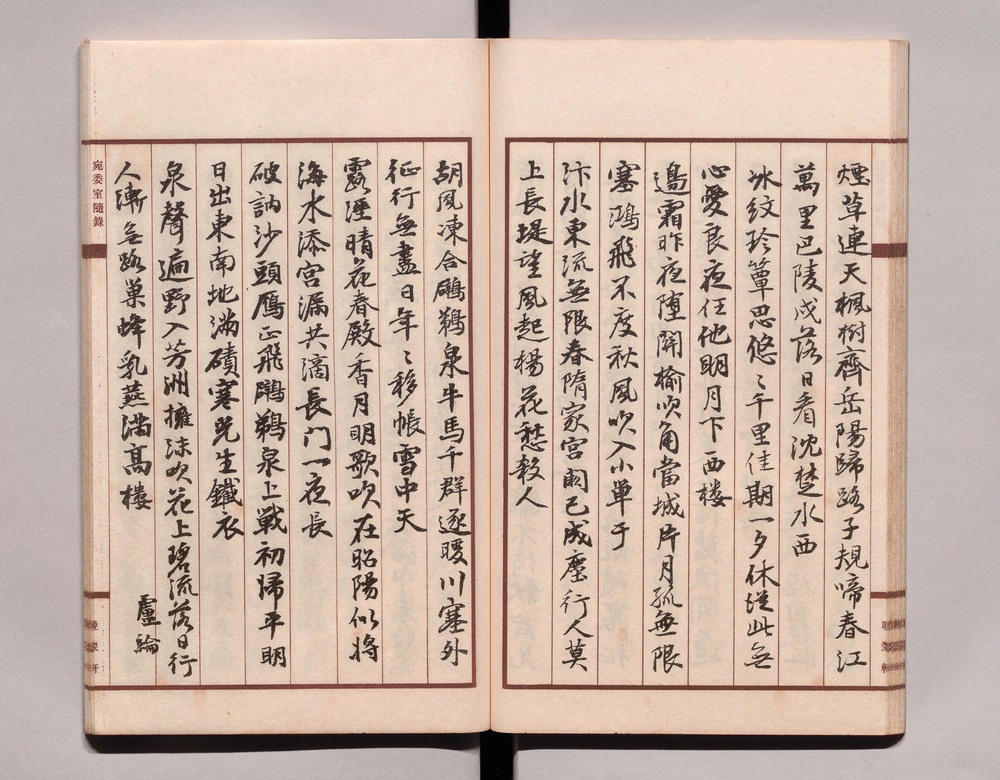 煙草連天楓樹齊岳陽歸路子規啼春江
萬里巴陵戍落日看沈楚水西
冰紋珍簟思悠〻千里佳期一夕休從此無
心愛良夜任他明月下西樓
邊霜昨夜墮關榆吹角當城片月孤無限
塞鴻飛不度秋風吹入小單于
汴水東流無限春隋家宮闕已成塵行人莫
上長堤望風起楊花愁殺人
胡風凍合鸊鵜泉牛馬千群逐暖川塞外
征行無盡日年〻移帳雪中天
露溼晴花春殿香月明歌吹在昭陽似將
海水添宮漏共滴長門一夜長
破訥沙頭鴈正飛鸊鵜泉上戰初歸平明
日出東南地滿磧寒光生鐵衣
泉聲遍野入芳洲擁沫吹花上碧流落日行
人漸無路巢蜂乳燕滿高樓
盧綸
宛委室隨錄